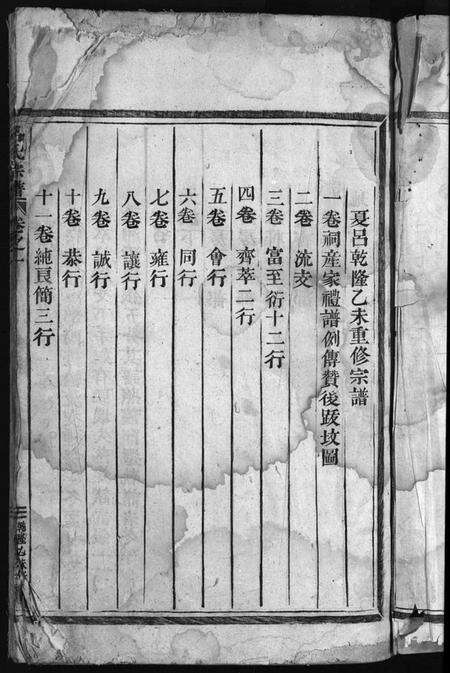 夏呂乾隆乙未重修宗譜
一卷祠產家禮譜例傳贊後跋坟圖
二卷 流支
三卷 富至衍十二行
四卷 齊萃二行
五卷 會行
六卷 同行
七卷 雍行
八卷 讓行
九卷 誠行
十卷 恭行
十一卷純良簡三行
氏宗譜 卷之一
乾隆乙未